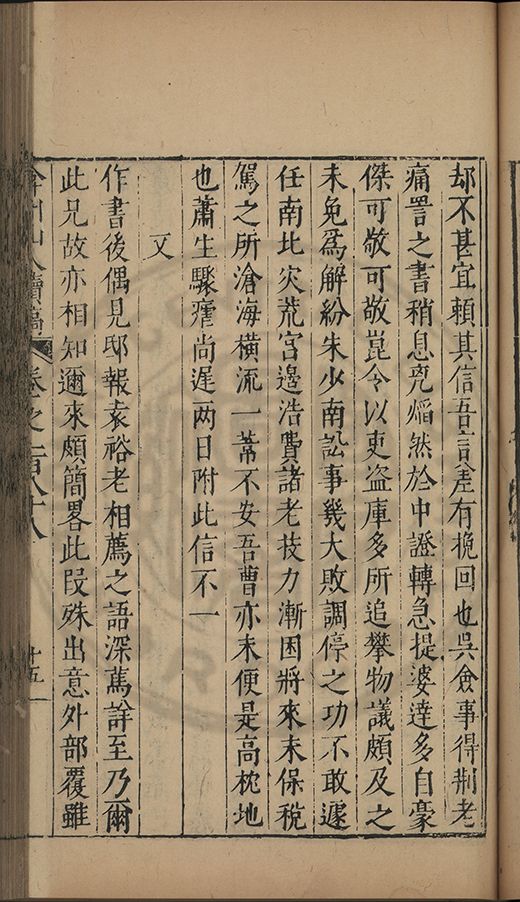 却不甚宜頼其信吾言差有挽回也吳僉事得荆老
痛詈之書稍息究㷔然於中證轉急提婆達多自豪
傑可敬可敬崑令以吏盗庫多所追攀物議頗及之
未免爲解紛朱少南訟事幾大敗調停之功不敢遽
任南北灾荒宫邊浩費諸老技力漸困將來未保稅
駕之所滄海橫流一葦不安吾曹亦未便是高枕地
也蕭生驟瘧尚遲两日附此信不一
又
作書後偶見邸報袁裕老相薦之語深薦詳至乃爾
此兄故亦相知邇來頗簡畧此叚殊出意外部覆雖
弇州山人續稿 卷之一百八十八
十五